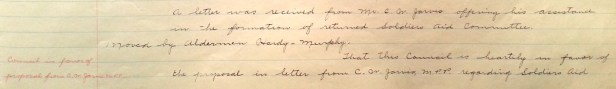 A letter was received from Mr C. W. Jarvis offering his assistance
in the formation of returned Soldiers Aid Committee.
Moved by Aldermen Hardy - Murphy.
That this Council is heartily in favor of
Council in favor of
proposal from C.W. Jarvis M.P.P.
the proposal in letter from C. W. Jarvis, M.P.P. regarding Soldiers Aid